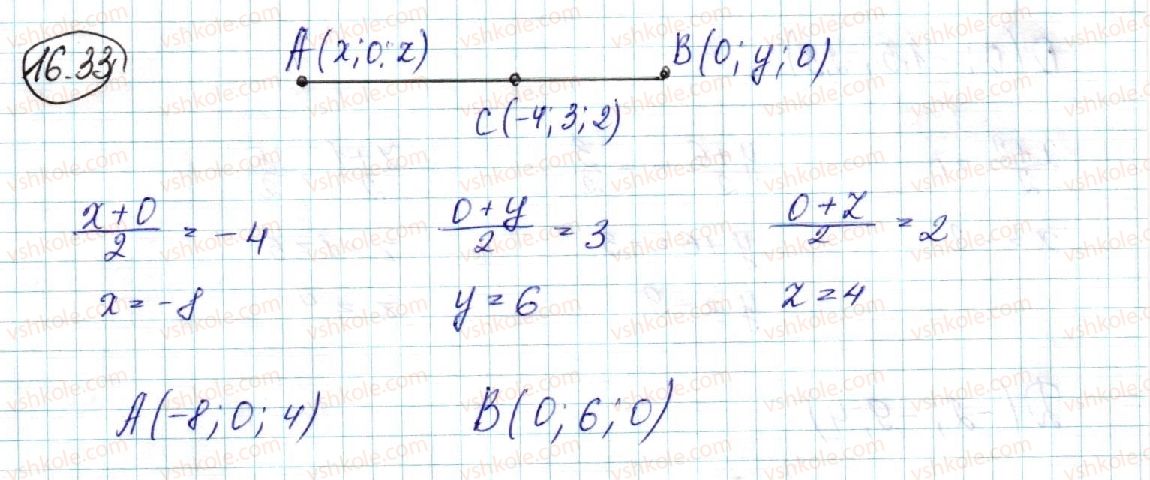 16.33
A(x;0;z) B(0;y;0)
C(-4;3;2)
x+0/2 = -4 0+y/2 = 3 0+z/2 = 2
x = -8 y = 6 z = 4
A(-8;0;4) B(0;6;0)